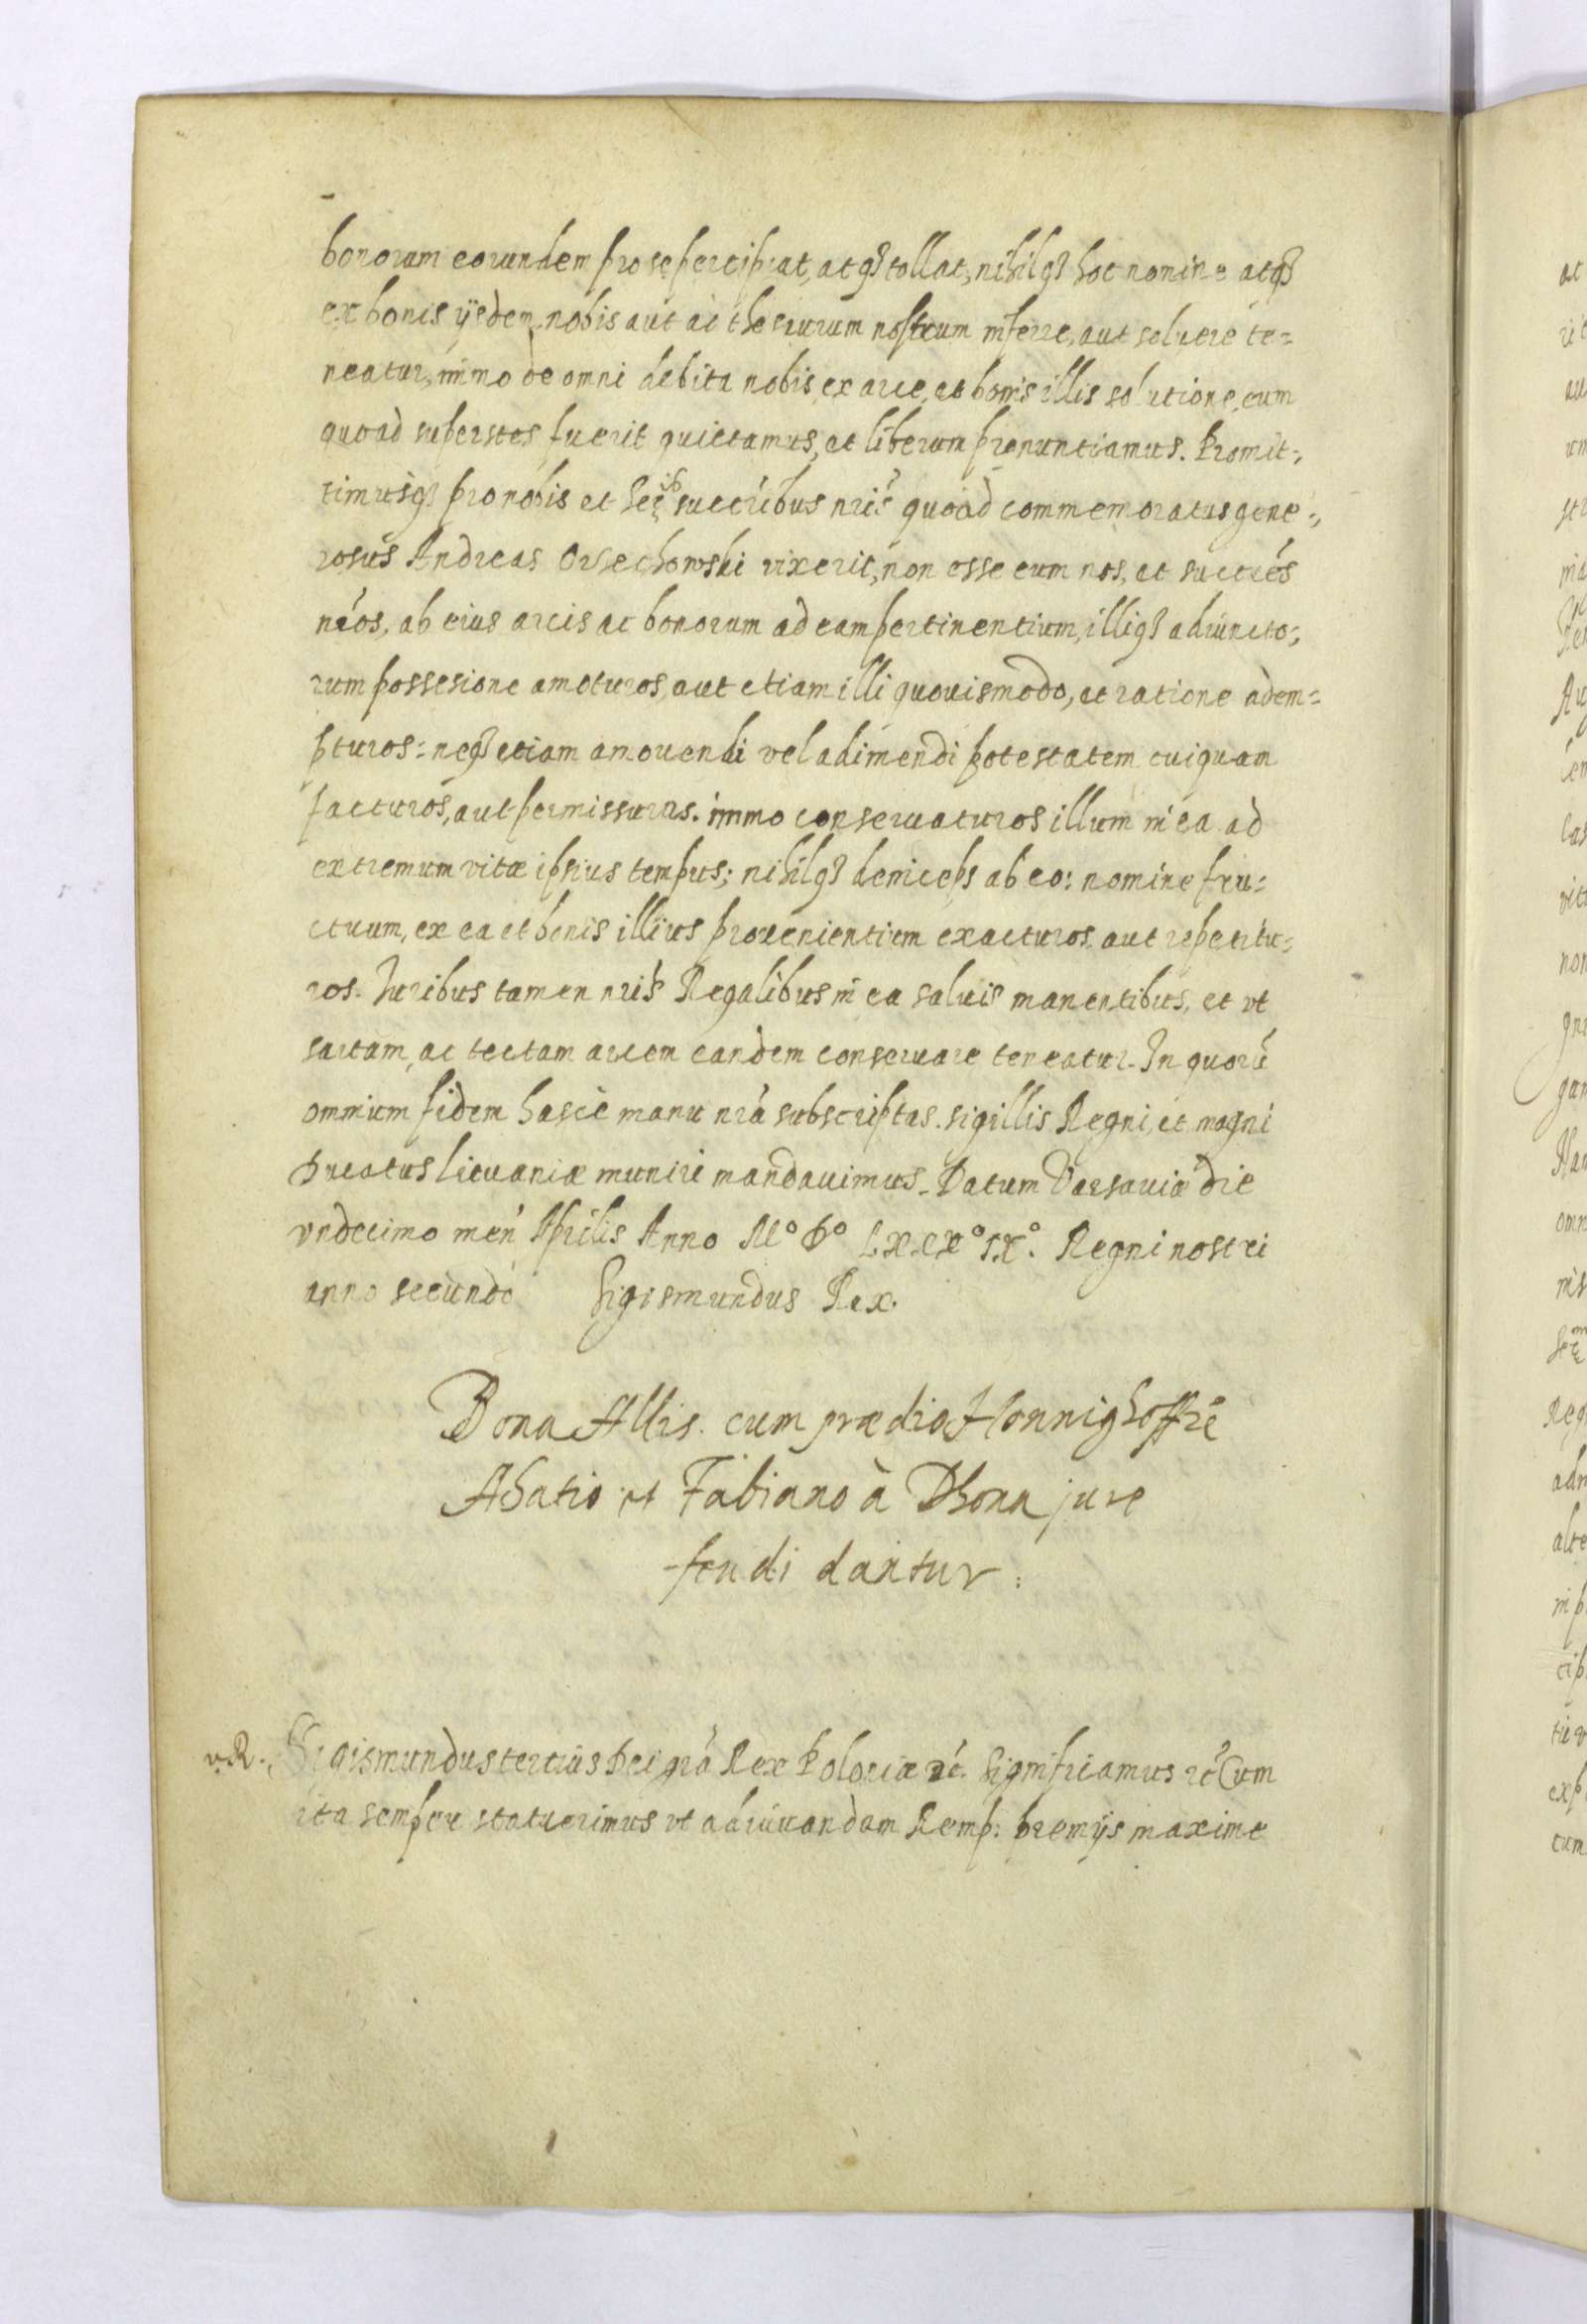 bonorum eorundem pro se percipiat, atq3 tollat, nihilq3 hoc nomine atq3
ex bonis ÿsdem nobis aut ad thesaurum nostrum inferre, aut soluere te=
neatur, immo de omni debita nobis ex arce, et bonis illis solutione, eum
quoad superstes fuerit quietamus, et liberum pronuntiamus. Promit=
timusq3 pro nobis et succribus nris quoad commemoratus gene=
rosus Andreas Orzechowski vixerit, non esse eum nos, et succres
nros, ab eius arcis ac bonorum ad eam pertinentium, illiq3 adiuncto=
rum possesione amoturos, aut etiam illi quouismodo, et ratione adem=
pturos: neq3 etiam amouendi vel adimendi potestatem cuiquam
facturos, aut permissuros. immo conseruaturos illum in ea ad
extremum vitæ ipsius tempus; nihilq3 deniceps ab eo: nomine fru=
ctuum, ex ea et bonis illius prouenientium exacturos aut repetitu=
ros. Iuribus tamen nris Regalibus in ea saluis manentibus, et vt
sartam, ac tectam arcem eandem conseruare teneatur. In quorũ
omnium fidem hasce manu nra subscriptas. sigillis Regni, et magni
Ducatus lituaniæ muniri mandauimus. Datum Varsauiæ die
vndecimo men Aprilis Anno Mº Dº LXXXº IXº. Regni nostri
anno secundo Sigismundus Rex.
Bona Allis. cum prædio Honnighoffre
Ahatio et Fabiano à Dhona jure
feudi dantur:
v.R. Sigismundus tertius Dei gra Rex Poloniæ rc. Significamus rc Cum
ita semper statuerimus vt adiuuandam Remp: premijs maxime